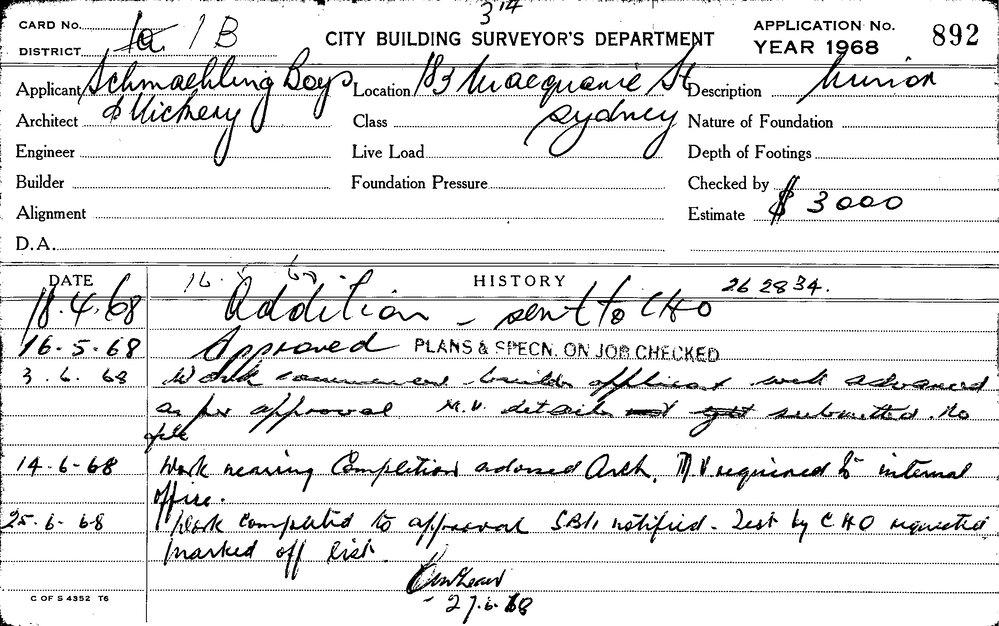 3
CARD No. 1a 1B
DISTRICT
CITY BUILDING SURVEYOR'S DEPARTMENT
APPLICATION No.
YEAR 1968
892
Applicant Schmaehling Boys
Location 183 Macquarie St
Description Minor
Architect & Vickery
Class Sydney
Nature of Foundation
Engineer
Live Load
Depth of Footings
Builder
Foundation Pressure
Checked by
Alignment
Estimate $ 3000
D.A.
DATE
HISTORY
16. 68. 262834.
18.4.68 Addition - sent to CHO
16-5-68 Approved PLANS & SPECN. ON JOB CHECKED
3.6.68 Work commenced builder applicant work advanced
as per approval M.V. details submitted. No
file
14-6-68 Work nearing Completion advised Arch. M.V. required to internal
office.
25-6-68 Work completed to approval notified - Test by CHO requested
marked off list.
27.6.68
C OF S 4352 T6